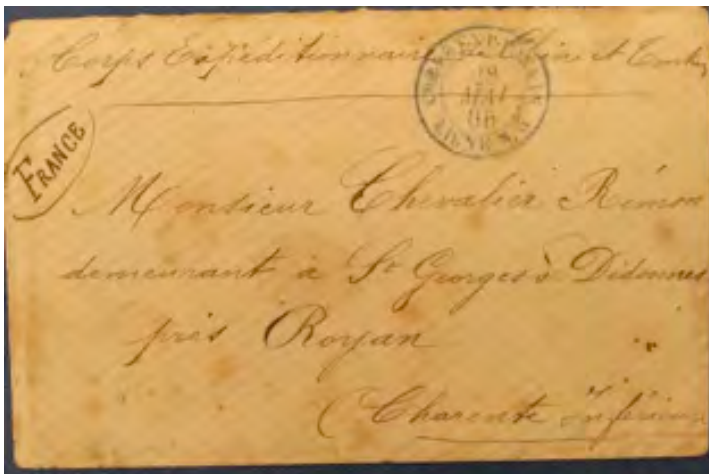 Corps Expéditionnaire de Chine et Tonkin
19
MAI
86
FRANCE
Monsieur Chevalier Rémon
demeurant à St Georges d Didonnes
près Royan
(Charente Inférieure